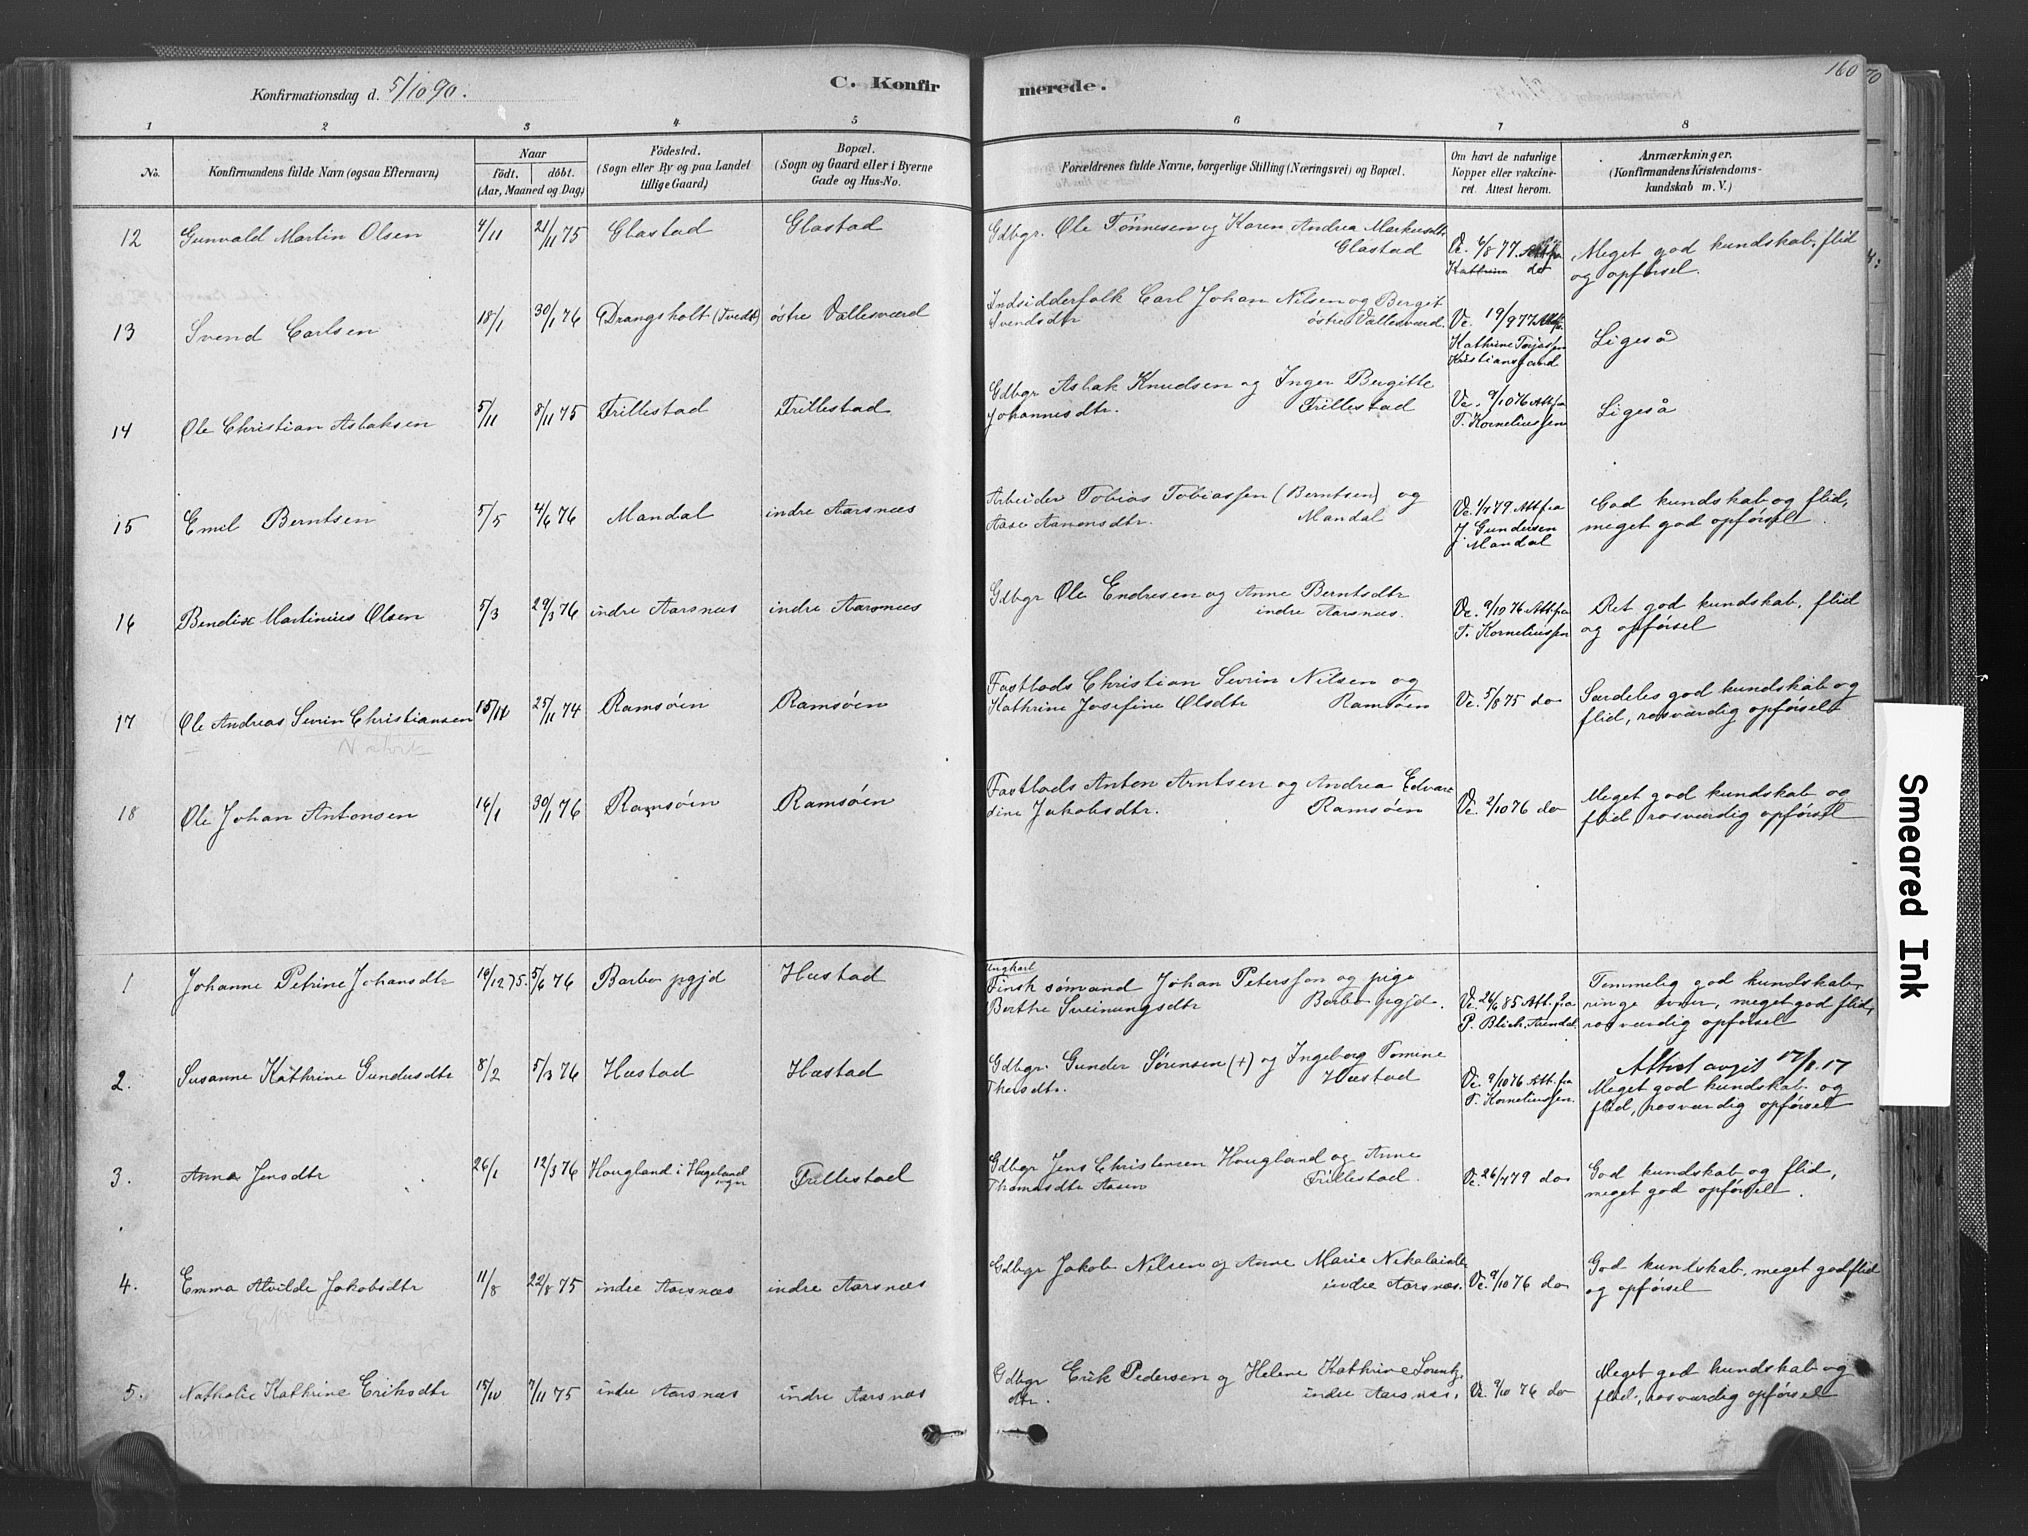 Konfirmationsdag d. 5/10 90.
C. Konfirmerede.
160
1 2 3 4 5 6 7 8
No.
Konfirmandens fulde Navn (ogsaa Efternavn)
Naar
födt. döbt.
(Aar, Maaned og Dag)
Födested.
(Sogn eller By og paa Landet
tillige Gaard)
Bopæl.
(Sogn og Gaard eller i Byerne
Gade og Hus-No.
Forældrenes fulde Navne, borgerlige Stilling (Næringsvei) og Bopæl.
Om havt de naturlige
Kopper eller vakcine-
ret. Attest herom.
Anmærkninger.
(Konfirmandens Kristendoms-
kundskab m. V.)
12 Gunvald Martin Olsen 4/11 21/11 75 Glastad Glastad
Gdbgr. Ole Tønnesen og Karen Andrea Markusdtr
Glastad
Vc. 6/8 77. Att. fra
Kathrine do
Meget god kundskab, flid
og opførsel.
13 Svend Carlsen 18/1 30/1 76 Drangsholt (Tvedt) østre Vallesværd
Indsidderfolk Carl Johan Nilsen og Berget
Svendsdtr østre Vallesværd.
Vc. 19/9 77 Att. fr.
Kathrine
Kristianssand
Ligeså
14 Ole Christian Aslaksen 5/11 8/11 75 Frillestad Frillestad
Gdbgr Aslak Knudsen og Inger Bergitte
Johannesdtr. Frillestad
Vc. 9/10 76 Att. fra
T. Korneliussen
Ligeså
15 Emil Berntsen 5/5 4/6 76 Mandal indre Aarsnæs
Arbeider Tobias Tobiassen (Berntsen) og
Aase Aanensdtr. Mandal
Vc. 79 Att. fra
J Gundersen
Mandal
God kundskab og flid,
meget god opførsel.
16 Bendix Martinius Olsen 5/3 29/3 76 indre Aarsnæs indre Aarsnæs
Gdbgr Ole Endresen og Anne Berntsdtr
indre Aarsnæs.
Vc. 9/10 76 Att. fra
T. Korneliussen
Ret god kundskab, flid
og opførsel
17 Ole Andreas Sevrin Christiansen 15/11 25/11 74 Ramsøen Ramsøen
Fastlods Christian Sevrin Nilsen og
Kathrine Josefine Olsdtr Ramsøen
Vc. 5/8 75 do
Særdeles god kundskab og
flid, rosværdig opførsel
18 Ole Johan Antonsen 16/1 30/1 76 Ramsøen Ramsøen
Fastlods Anton Arntsen og Andrea Edvar-
dine Jakobsdtr. Ramsøen
Vc. 2/10 76 do
Meget god kundskab og
flid, rosværdig opførsel
1 Johanne Petrine Johansdtr 19/12 75. 5/6 76 Barbo pgjd Hæstad
Ungkarl
Finsk sømand Johan Peterssen og pige
Berthe Sveinungsdtr Barbo pgjd.
Vc. 26/6 85 Att. fra
P. Blich, Arendal
Temmelig god kundskab
ringe evner, meget god flid,
rosværdig opførsel
2. Susanne Kathrine Gundersdtr 8/2 5/3 76 Hæstad Hæstad
Gdbgr. Gunder Sørensen (+) og Ingeborg Tomine
Thersdtr. Hæstad
Vc. 9/10 76 Att. fra
T. Korneliussen.
Attest avgit 17/8. 17
Meget god kundskab og
flid, rosværdig opførsel
3. Anna Jensdtr 26/1 12/3 76 Hougland i Hægeland sogn Frillestad
Gdbgr Jens Christensen Hougland og Anne
Thomasdtr Aasen Frillestad.
Vc. 26/7 79 do
God kundskab og flid,
meget god opførsel.
4. Emma Alvilde Jakobsdtr 11/8 22/8 75 indre Aarsnæs indre Aarsnæs
Gdbgr Jakob Nilsen og Anne Marie Nikolaisdtr
indre Aarsnæs.
Vc. 9/10 76 do
God kundskab, meget god flid
og opførsel
5. Nathalie Kathrine Eriksdtr 15/10 7/11 75 indre Aarsnæs indre Aarsnæs
Gdbgr Erik Pedersen og Helene Kathrine Lorentz-
dtr. indre Aarsnæs.
Vc. 9/10 76 do
Meget god kundskab og
flid, rosværdig opførsel
Smeared Ink